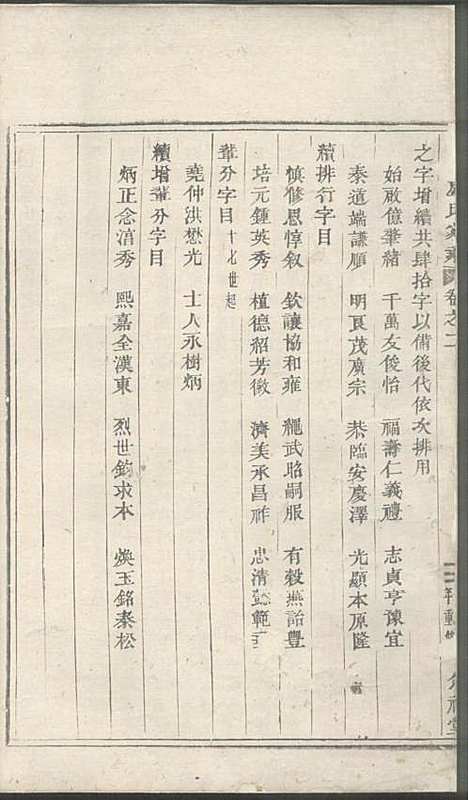 氏家乘 卷之二
之字增續共肆拾字以備後代依次排用
始啟億肇緒 千萬友俊怡 福壽仁義禮 志貞亨豫宜
泰道端謙順 明良茂廣宗 恭臨安慶澤 光顯本原隆
續排行字目
慎修恩惇叙 欽讓協和雍 繩武昭嗣服 有穀燕詒豐
培元鍾英秀 植德紹芳徽 濟美承昌祚 忠清懿範
輩分字目十七世起
堯仲洪懋光 士人永樹炳
續增輩分字目
炳正念淯秀 熙嘉全漢東 烈世鈞求本 煥玉銘泰松